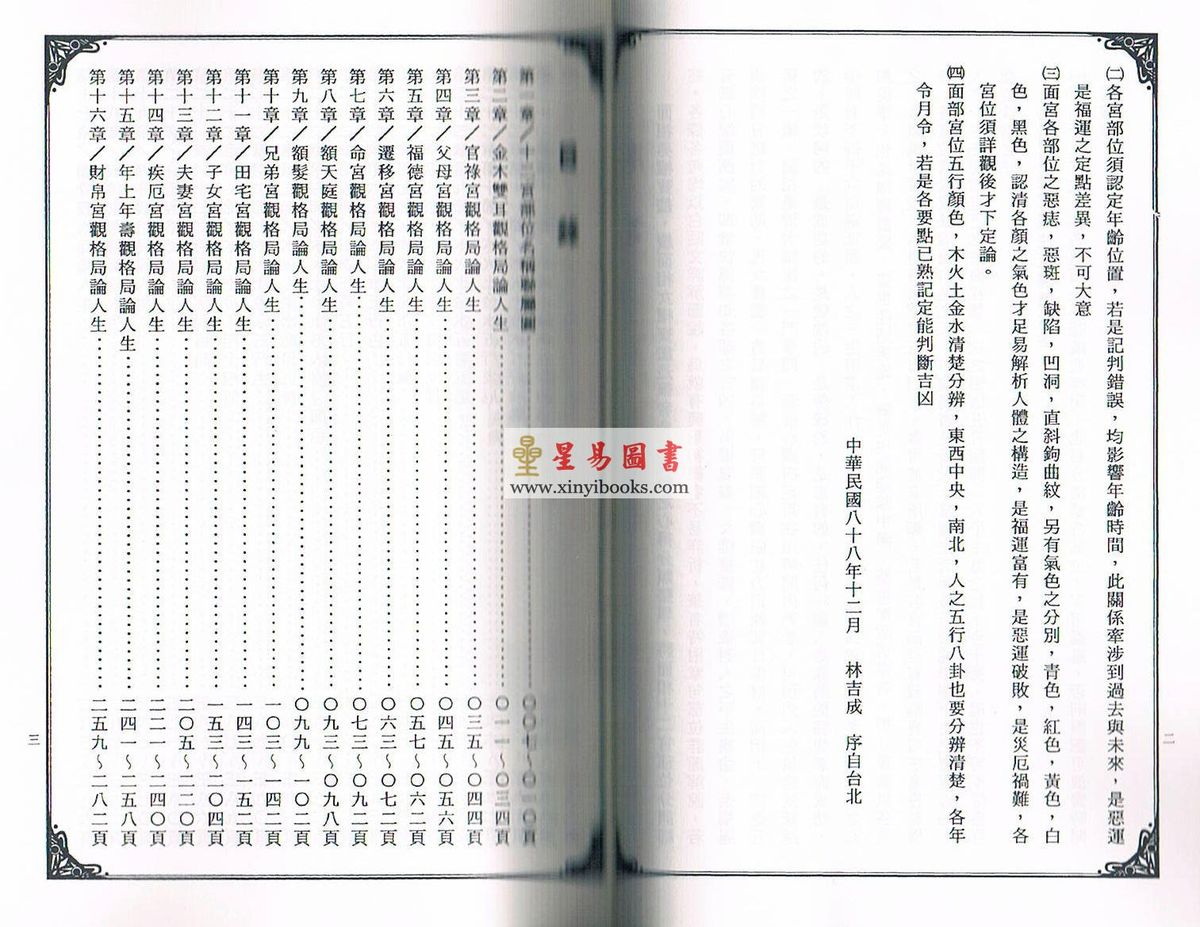 ㈡各宮部位須認定年齡位置，若是記判錯誤，均影響年齡時間，此關係牽涉到過去與未來，是惡運
是福運之定點差異，不可大意
㈢面宮各部位之惡痣，惡斑，缺陷，凹洞，直斜鉤曲紋，另有氣色之分別，青色，紅色，黃色，白
色，黑色，認清各顏之氣色才足易解析人體之構造，是福運富有，是惡運破敗，是災厄禍難，各
宮位須詳觀後才下定論。
㈣面部宮位五行顏色，木火土金水清楚分辨，東西中央，南北，人之五行八卦也要分辨清楚，各年
令月令，若是各要點已熟記定能判斷吉凶
中華民國八十八年十二月　林吉成　序自台北
二
星易圖書
www.xinyibooks.com
目　錄
第一章／十二宮部位名稱聯屬圖⋯⋯⋯⋯〇〇七～〇一〇頁
第二章／金木雙耳觀格局論人生⋯⋯⋯⋯〇一一～〇三四頁
第三章／官祿宮觀格局論人生⋯⋯⋯⋯〇三五～〇四四頁
第四章／父母宮觀格局論人生⋯⋯⋯⋯〇四五～〇五六頁
第五章／福德宮觀格局論人生⋯⋯⋯⋯〇五七～〇六二頁
第六章／遷移宮觀格局論人生⋯⋯⋯⋯〇六三～〇七二頁
第七章／命宮觀格局論人生⋯⋯⋯⋯〇七三～〇九二頁
第八章／額天庭觀格局論人生⋯⋯⋯⋯〇九三～〇九八頁
第九章／額髮觀格局論人生⋯⋯⋯⋯〇九九～一〇二頁
第十章／兄弟宮觀格局論人生⋯⋯⋯⋯一〇三～一四二頁
第十一章／田宅宮觀格局論人生⋯⋯⋯⋯一四三～一五二頁
第十二章／子女宮觀格局論人生⋯⋯⋯⋯一五三～二〇四頁
第十三章／夫妻宮觀格局論人生⋯⋯⋯⋯二〇五～二二〇頁
第十四章／疾厄宮觀格局論人生⋯⋯⋯⋯二二一～二四〇頁
第十五章／年上年壽觀格局論人生⋯⋯⋯⋯二四一～二五八頁
第十六章／財帛宮觀格局論人生⋯⋯⋯⋯二五九～二八二頁
三